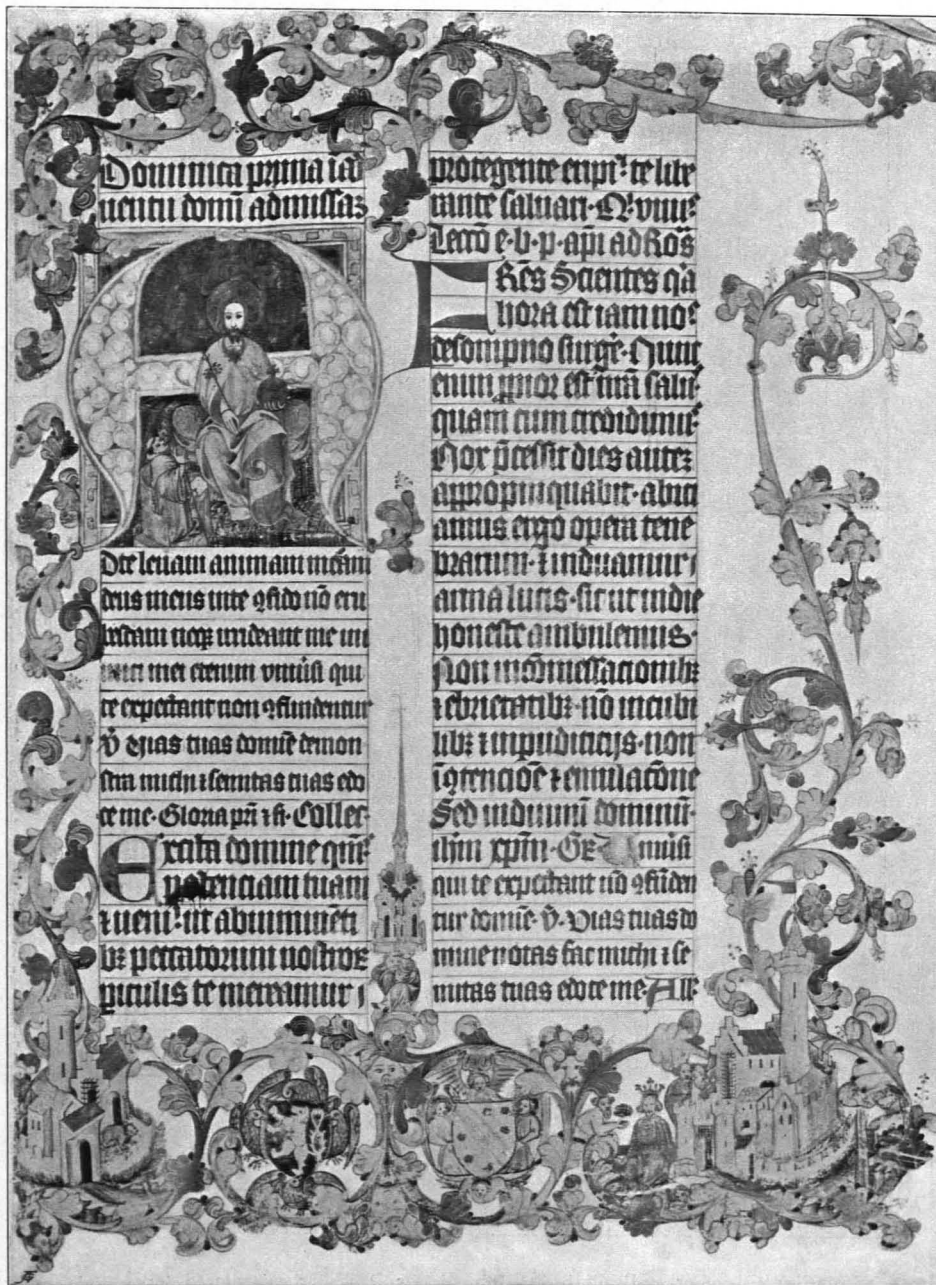 Dominica prima in ad
uentu domi ad missaz
Dte leuaui animam meam
deus meus in te ꝯfido nō eru
bescam neqꝫ irrideant me ini
mici mei etenim vniusi qui
te expectant non ꝯfundentur
v̄ vias tuas domīe demon
stra michi ⁊ semitas tuas edo
ce me · Gloria pri ⁊ fi · Collec
Excita domine qm̄s
potenciam tuam
⁊ ueni · ut ab imminēti
bꝫ peccatorum nostroꝝ
piculis te mereamur ı
protegente eripi · te libe
rante saluari · Qͥ viuis
Lectō e · b · p · apli ad Roōs
FRēs Scientes qꝛ
hora est iam nos
de sompno surgē · Nunc
enim ꝓpior est nrā salus
quam cum credidimus
Nox p̄cessit dies autez
appropinquabit · abici
amus ergo opera tene
brarum · ⁊ induamur ı
arma lucis · sic ut in die
honeste ambulemus ·
Non in cōmessacionibꝫ
⁊ ebrietatibꝫ · nō in cubi
libꝫ ⁊ inpudicicijs · non
ī ꝯtencioē ⁊ emulacōne
Sed induimini dominū
ihm xpm · Gr̄ Vniusi
qui te expectant nō ꝯfunden
tur domīe · v̄ · Vias tuas do
mine notas fac michi ⁊ se
mitas tuas edoce me · All